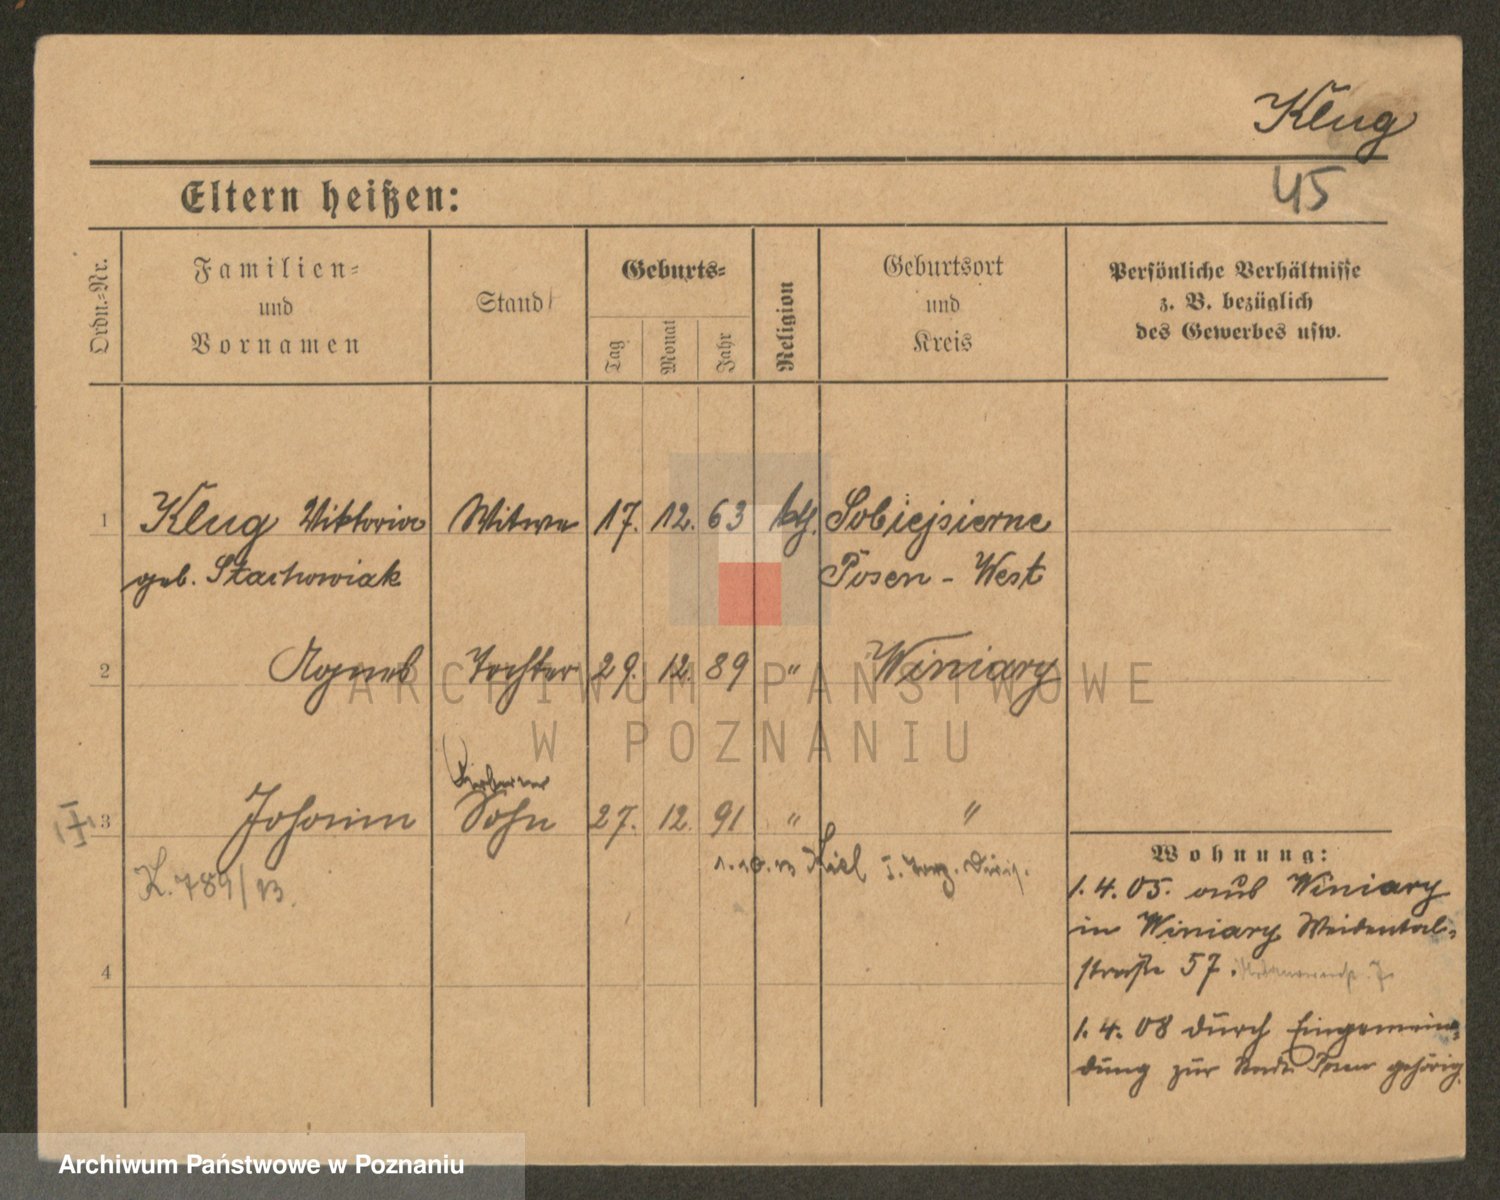 Klug
45
Eltern heißen:
Ordn.-Nr.
Familien-
und
Vornamen
Stand
Geburts-
Tag
Monat
Jahr
Religion
Geburtsort
und
Kreis
Persönliche Verhältnisse
z. B. bezüglich
des Gewerbes usw.
1 Klug Viktoria Witwe 17. 12. 63 kth. Sobiejsierne
geb. Stachowiak Posen - West
2 Agnes Tochter 29. 12. 89 " Winiary
3 Johann Sohn 27. 12. 91 " "
1.10.13 Kiel I.
K. 789/13.
4
Wohnung:
1.4.05. aus Winiary
in Winiary Weidental-
straße 57.
1.4.08 durch Eingemein-
dung zur Stadt Posen gehörig.
ARCHIWUM PAŃSTWOWE
W POZNANIU
Archiwum Państwowe w Poznaniu